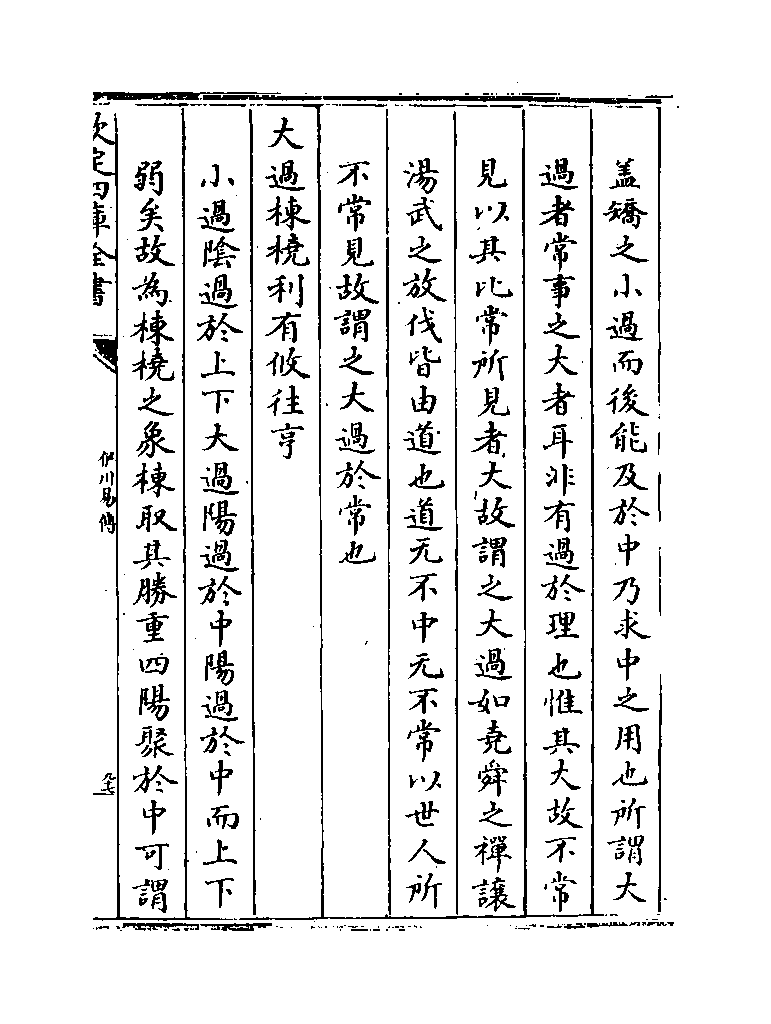 盖矯之小過而後能及於中乃求中之用也所謂大
過者常事之大者耳非有過於理也惟其大故不常
見以其比常所見者大故謂之大過如堯舜之禪讓
湯武之放伐皆由道也道无不中无不常以世人所
不常見故謂之大過於常也
大過棟橈利有攸往亨
小過陰過於上下大過陽過於中陽過於中而上下
弱矣故為棟橈之象棟取其勝重四陽聚於中可謂
欽定四庫全書
伊川易傳